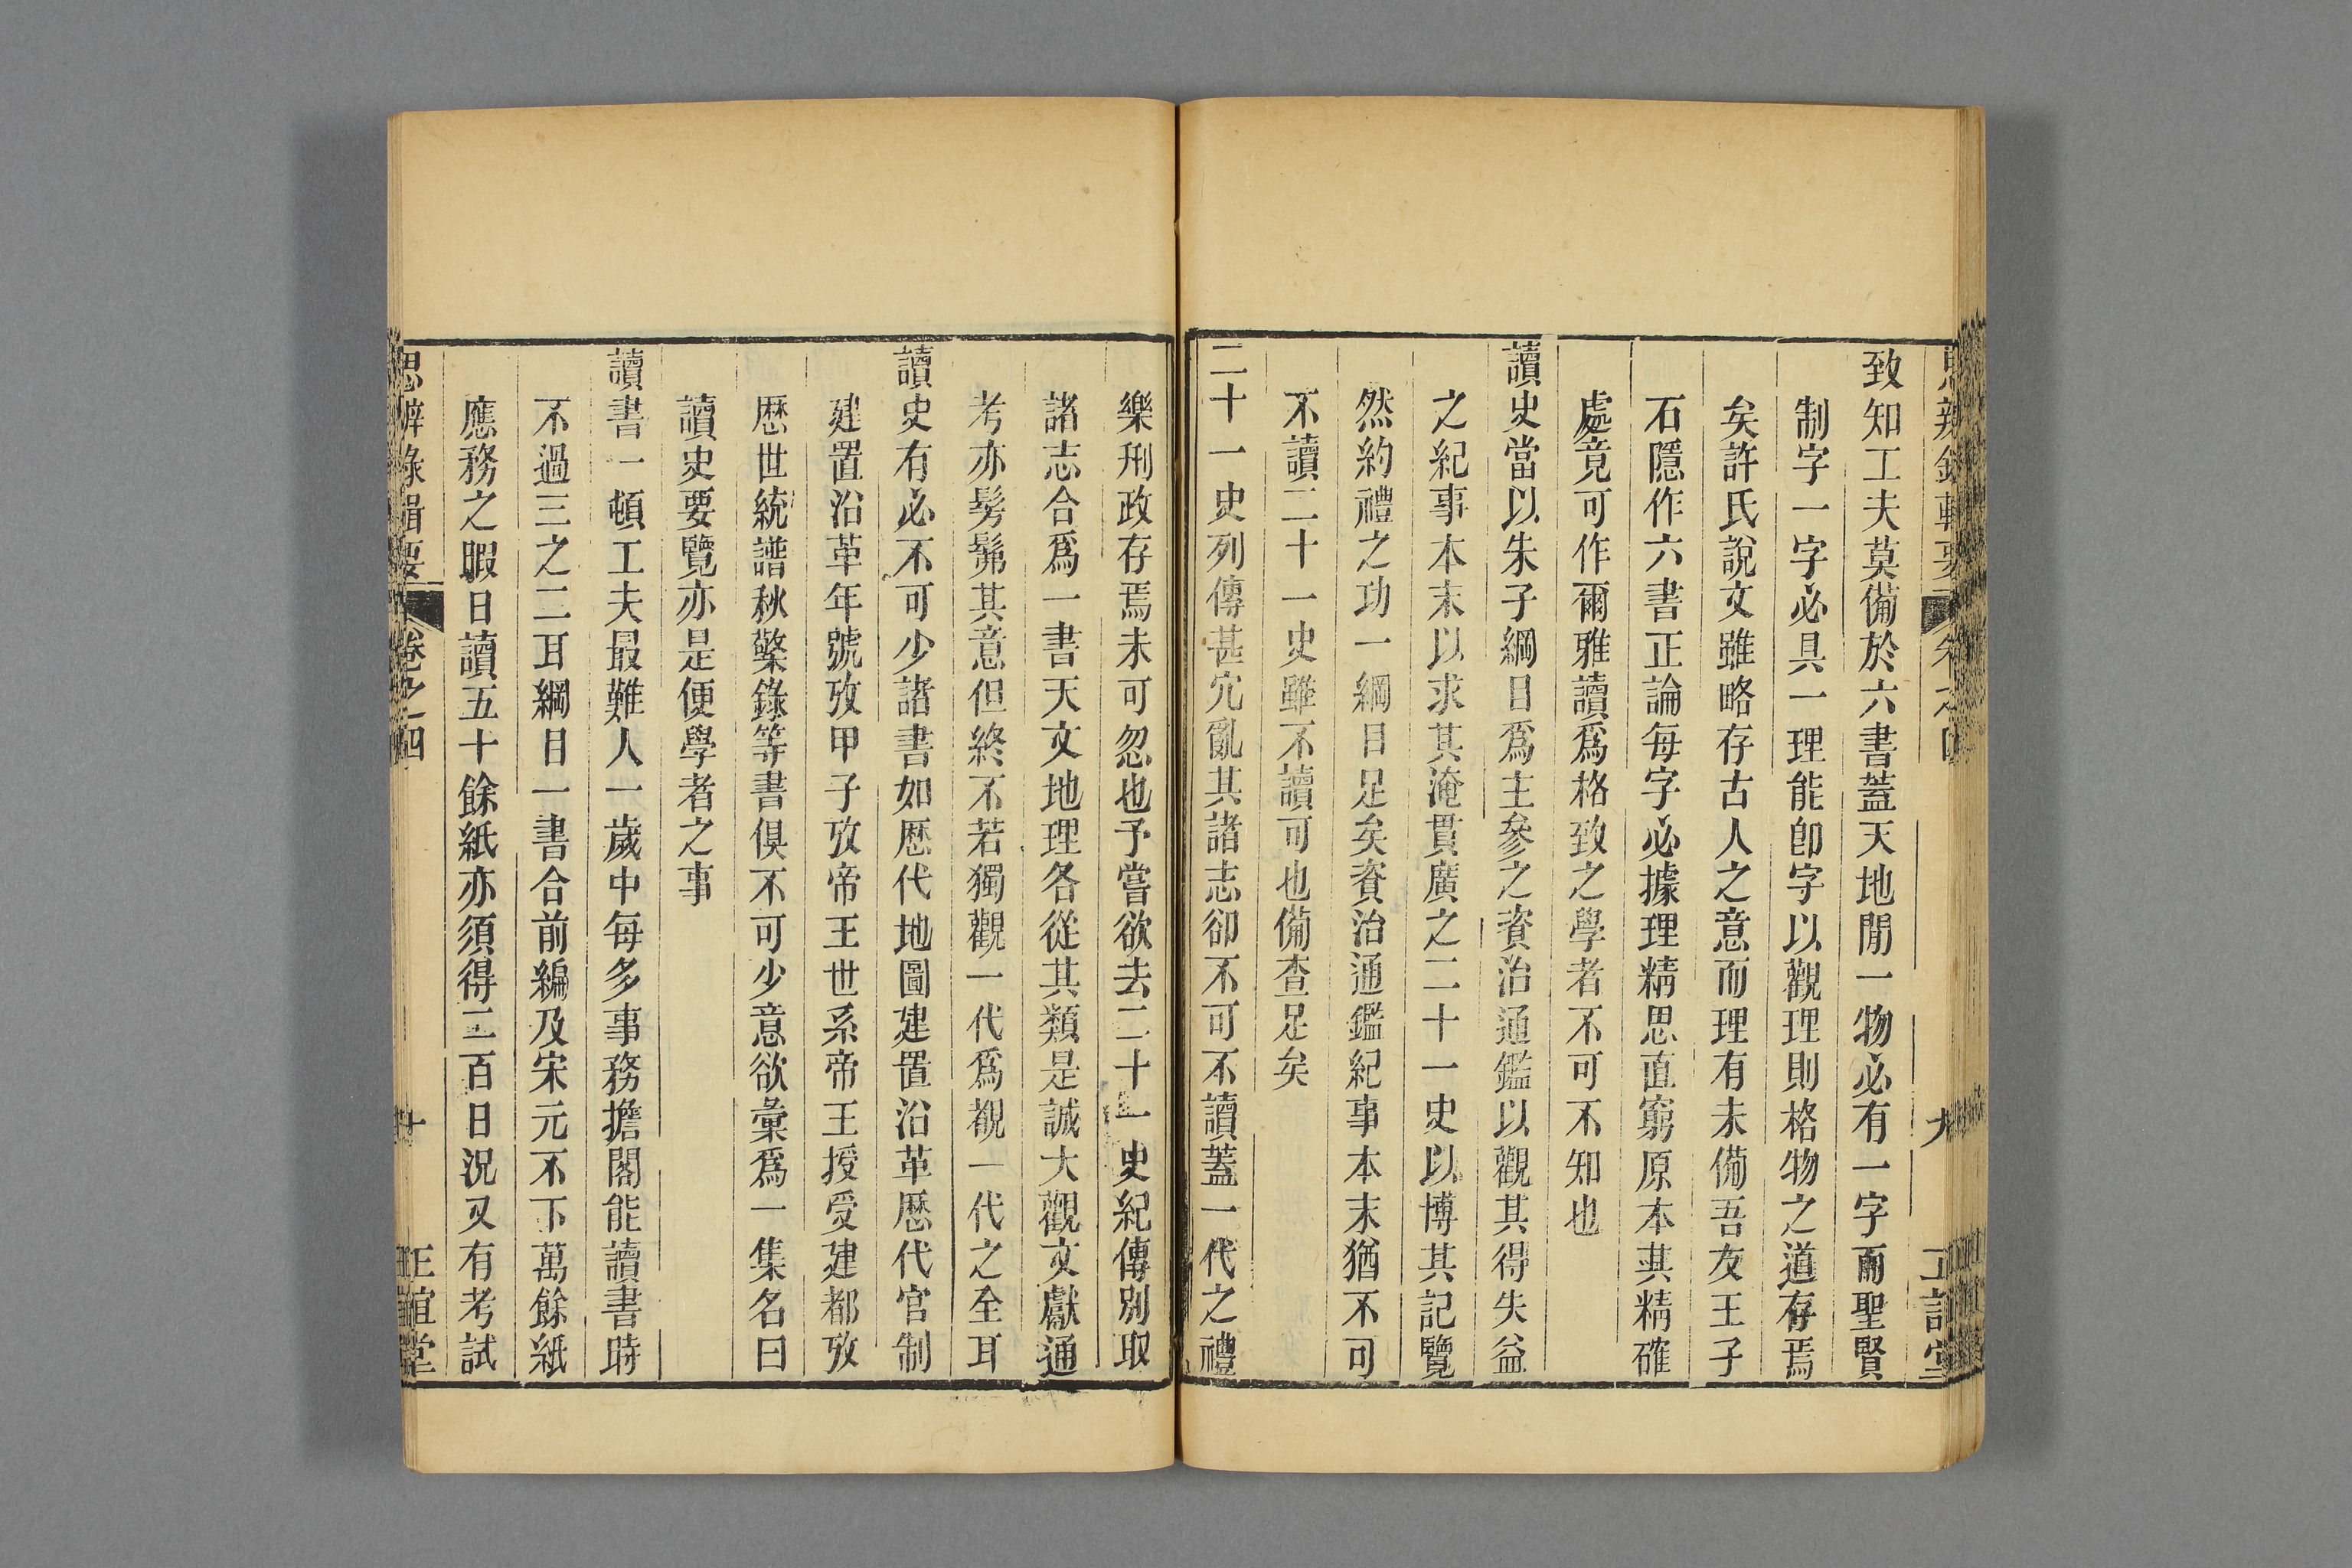 致知工夫莫備於六書蓋天地閒一物必有一字而聖賢
制字一字必具一理能卽字以觀理則格物之道存焉
矣許氏說文雖略存古人之意而理有未備吾友王子
石隱作六書正論每字必據理精思直窮原本其精確
處竟可作爾雅讀爲格致之學者不可不知也
讀史當以朱子綱目爲主參之資治通鑑以觀其得失益
之紀事本末以求其淹貫廣之二十一史以博其記覽
然約禮之功一綱目足矣資治通鑑紀事本末猶不可
不讀二十一史雖不讀可也備查足矣
二十一史列傳甚冗亂其諸志卻不可不讀蓋一代之禮
樂刑政存焉未可忽也予嘗欲去二十一史紀傳別取
諸志合爲一書天文地理各從其類是誠大觀文獻通
考亦髣髴其意但終不若獨觀一代爲覩一代之全耳
讀史有必不可少諸書如歷代地圖建置沿革歷代官制
建置沿革年號攷甲子攷帝王世系帝王授受建都攷
歷世統譜秋檠錄等書俱不可少意欲彙爲一集名曰
讀史要覽亦是便學者之事
讀書一頓工夫最難人一歲中每多事務擔閣能讀書時
不過三之二耳綱目一書合前編及宋元不下萬餘紙
應務之暇日讀五十餘紙亦須得二百日況又有考試
思辨錄輯要 卷之四 十 正誼堂